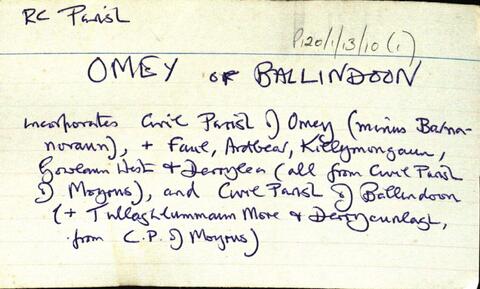 RC Parish
P120/1/13/10 (1)
OMEY or BALLINDOON
incorporates Civil Parish of Omey (minus Barna-
noraun), + Faul, Ardbear, Killymongaun,
Gowlaun West + Derrylea (all from Civil Parish
of Moyrus), and Civil Parish of Ballindoon
(+ Tullaghlummann More + Derrycunlagh,
from C.P. of Moyrus)